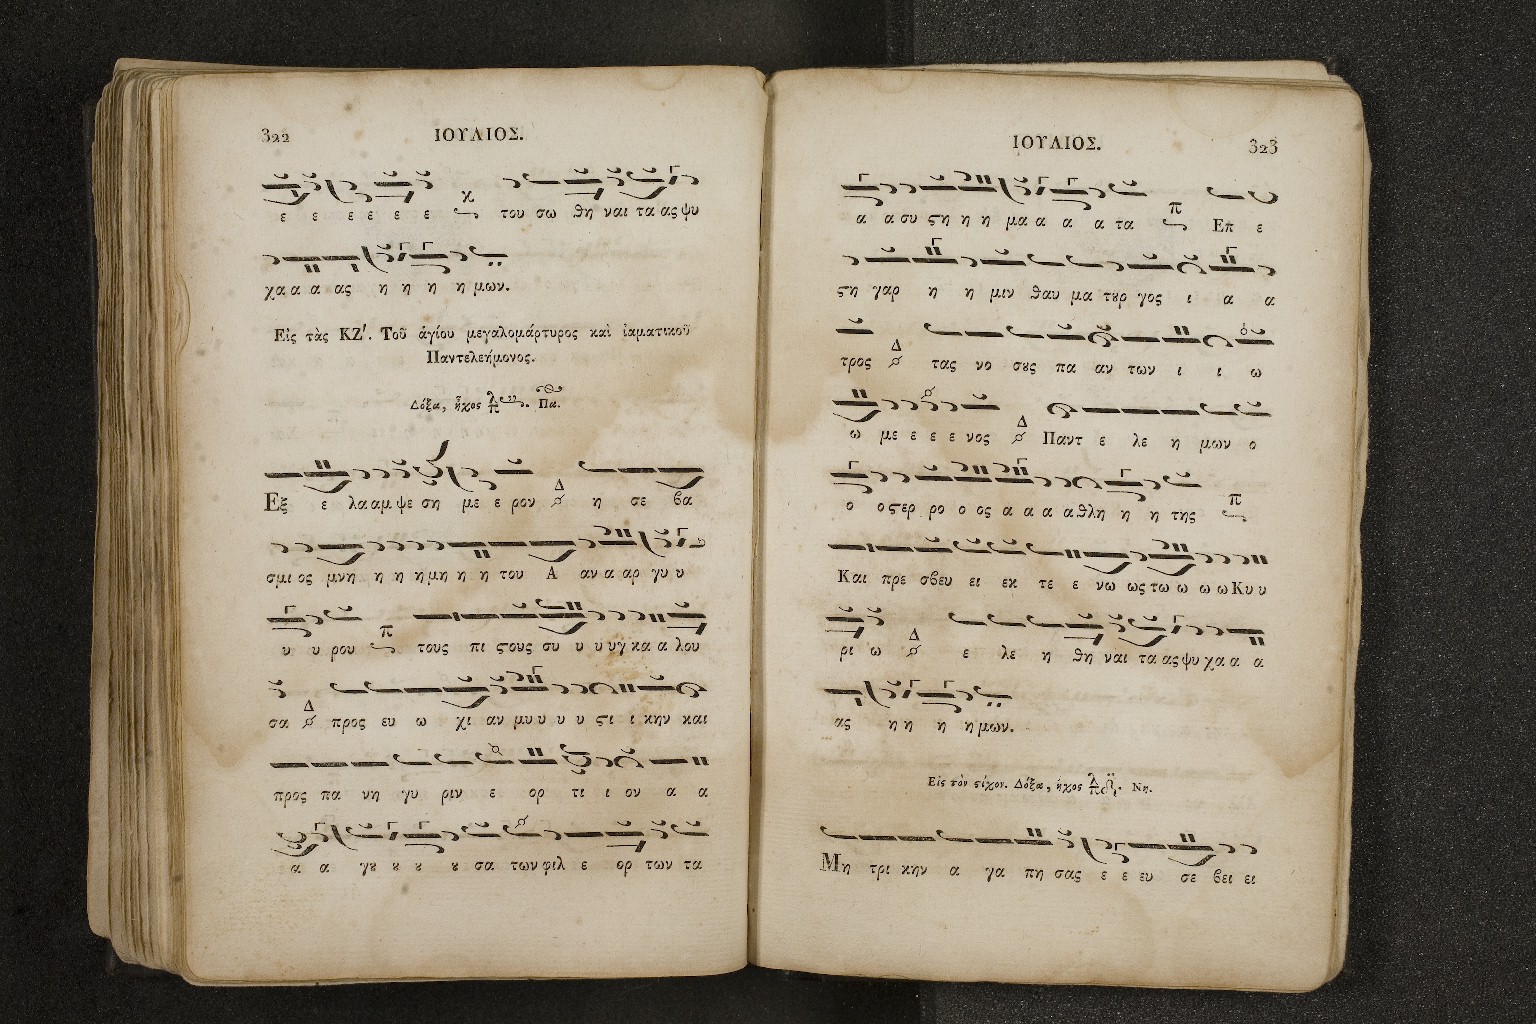 322 ΙΟΥΛΙΟΣ.
ε ε ε ε ε ε του σω θη ναι τα ας ψυ
χα α α ας η η η η μων.
Εἰς τὰς ΚΖ'. Τοῦ ἁγίου μεγαλομάρτυρος καὶ ἰαματικοῦ
Παντελεήμονος.
Δόξα, ἦχος Πα.
Εξ ε λα αμ ψε ση με ε ρον η σε βα
σμι ος μνη η η η μη η η του Α αν α αρ γυ υ
υ υ ρου τους πι ϛους συ υ υ υγ κα α λου
σα προς ευ ω χι αν μυ υ υ υ ϛι ι κην και
προς πα νη γυ ριν ε ορ τι ι ον α α
α α γȣ ȣ ȣ ȣ σα των φιλ ε ορ των τα
ΙΟΥΛΙΟΣ. 323
α α συ ϛη η η μα α α α τα Επ ε
ϛη γαρ η η μιν θαυ μα τȣρ γος ι α α
τρος τας νο σȣς πα αν των ι ι ω
ω με ε ε ε νος Παντ ε λε η μων ο
ο ο ϛερ ρο ο ος α α α α θλη η η της
Και πρε σβευ ει εκ τε ε νω ως τω ω ω ω Κυ υ
ρι ω ε λε η θη ναι τα ας ψυ χα α α
ας η η η η μων.
Εἰς τὸν ϛίχον. Δόξα, ἦχος Νη.
Μη τρι κην α γα πη σας ε ε ευ σε βει ει